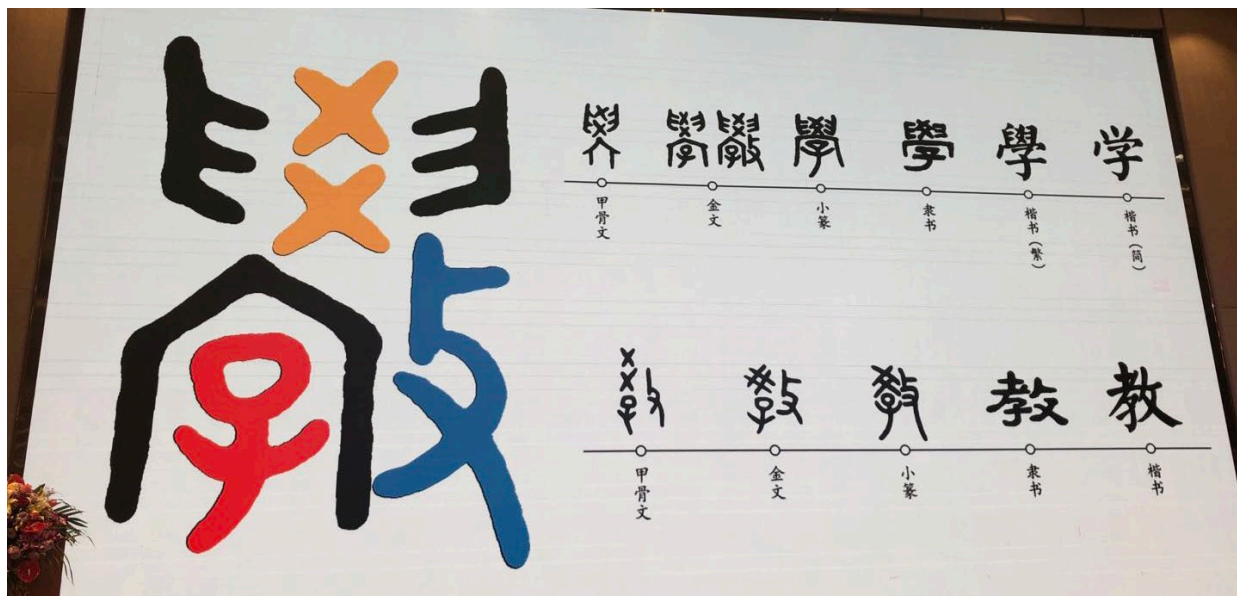 斆
學 學 斆 學 學 學 学
甲骨文 金文 小篆 隶书 楷书（繁） 楷书（简）
教 教 教 教 教
甲骨文 金文 小篆 隶书 楷书